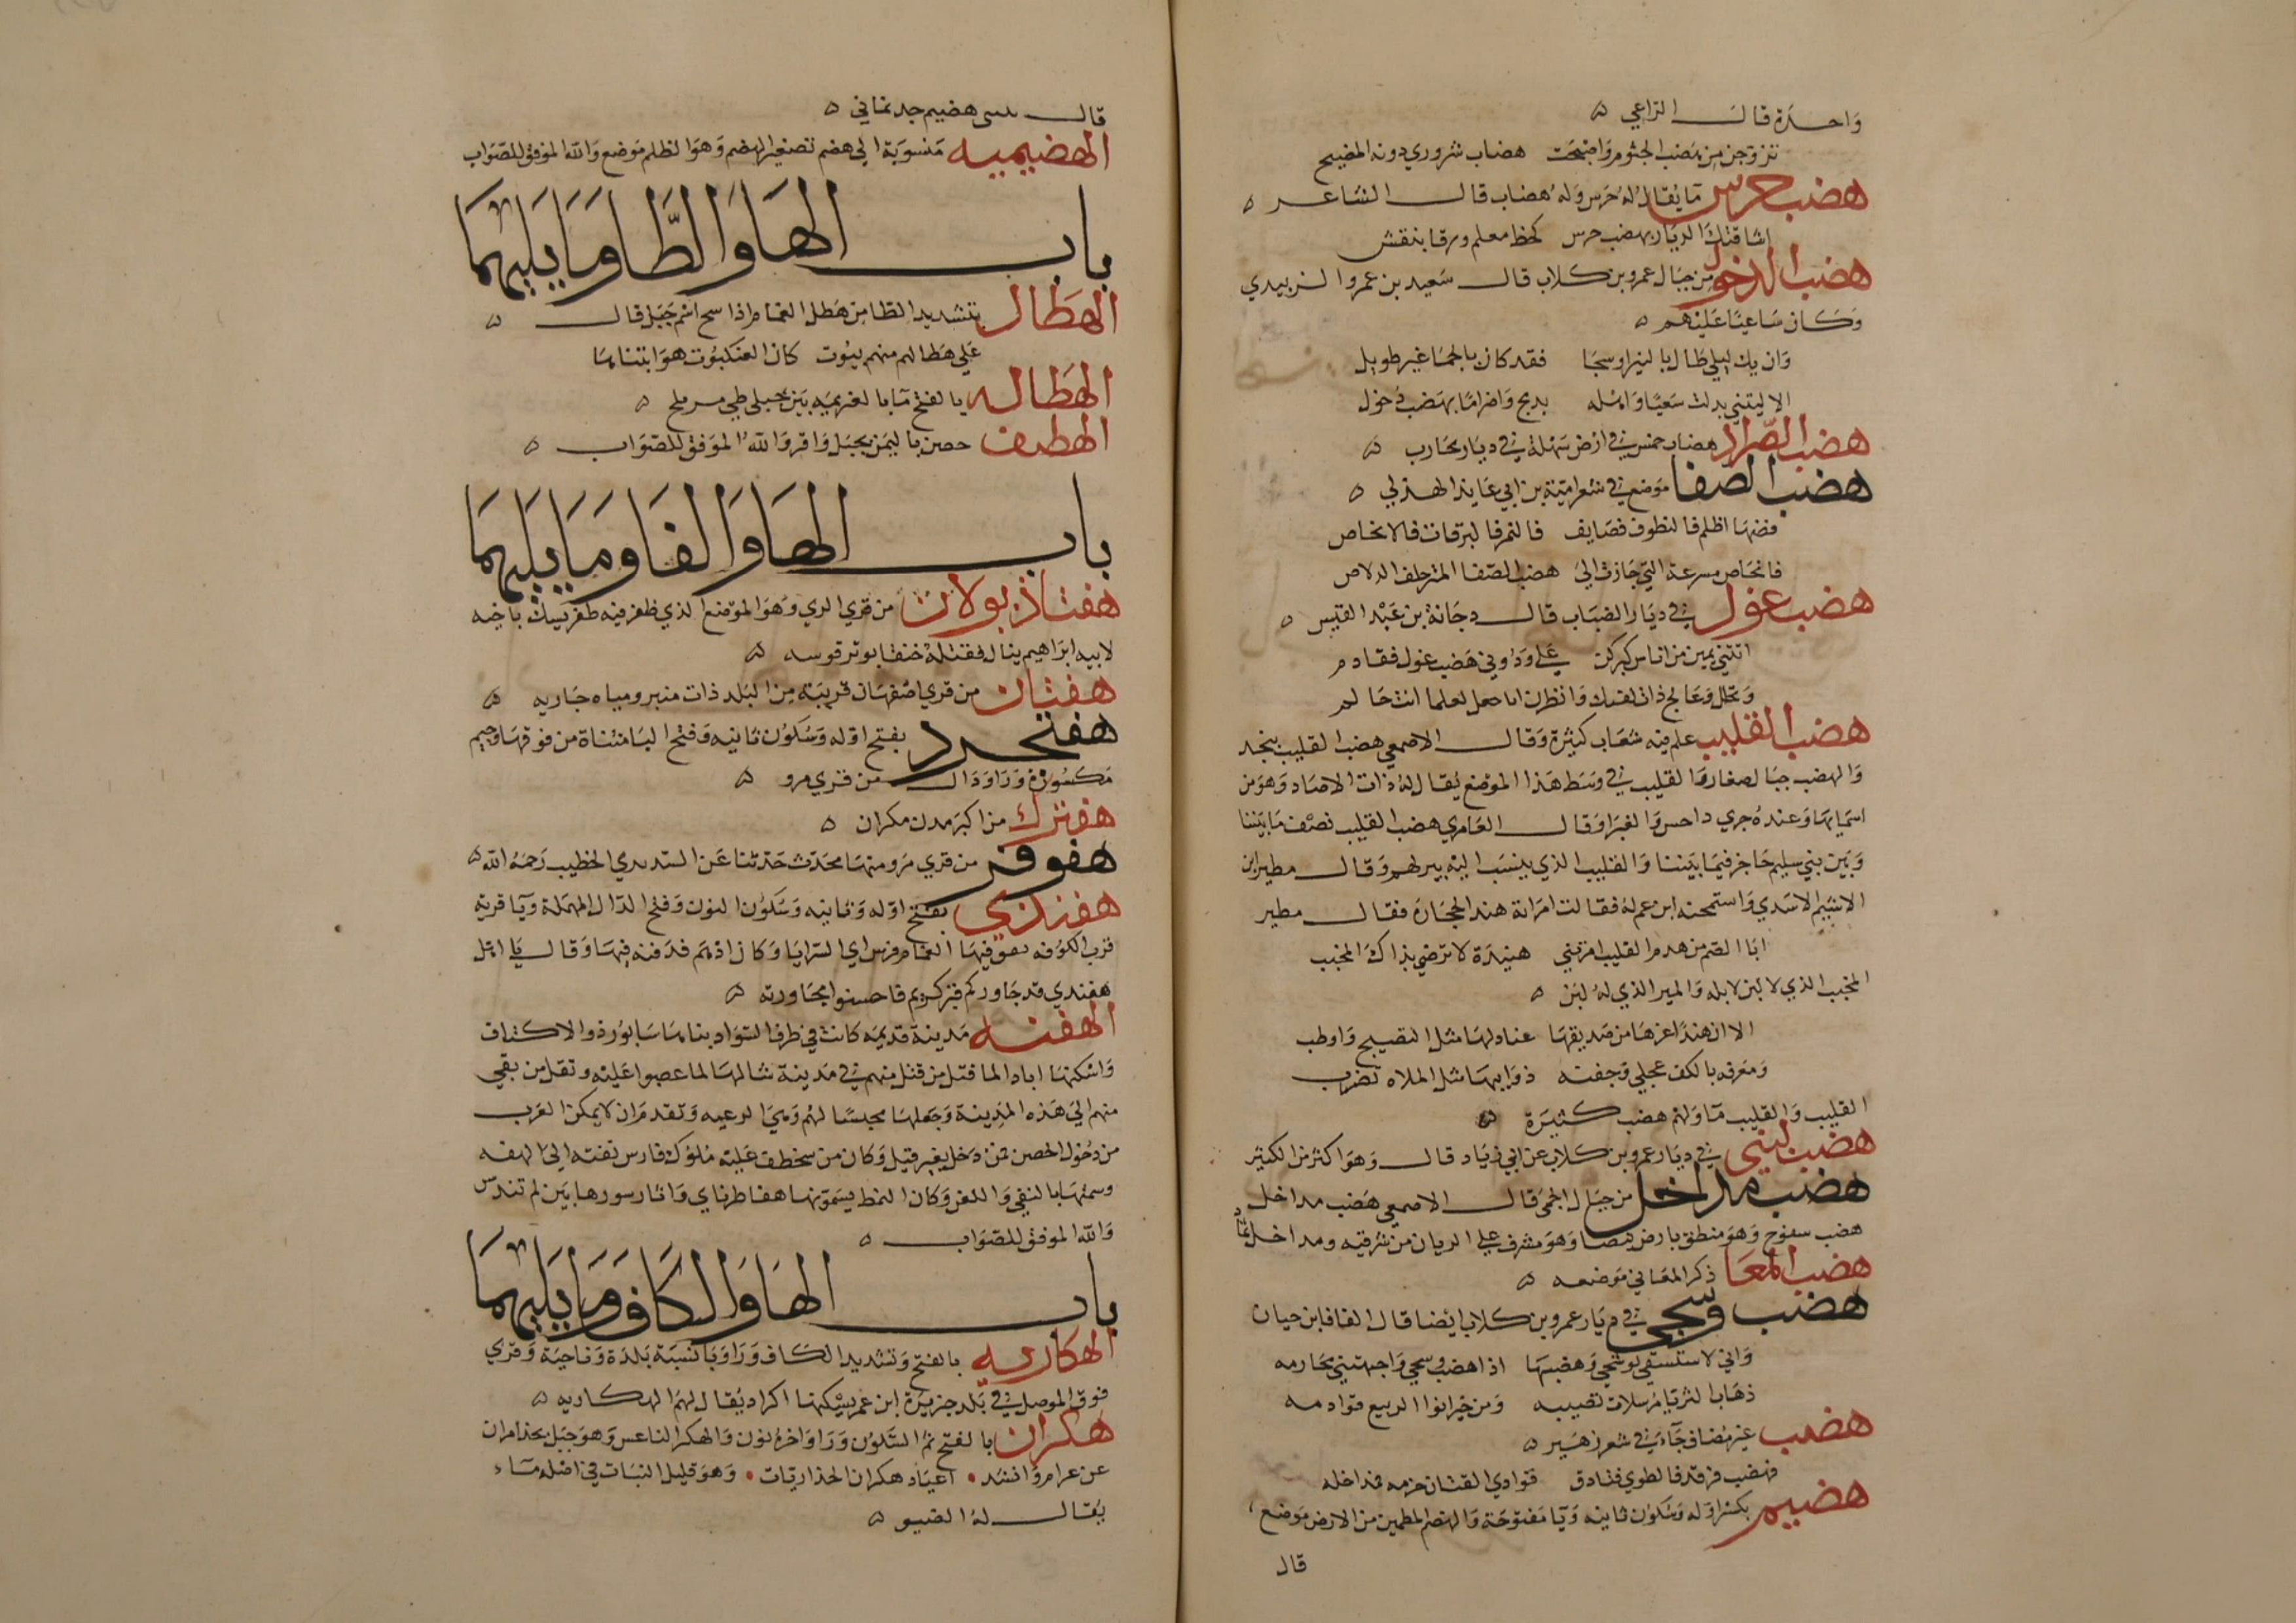 واحدة قال الراعي ه
تتروحن من هضب الجثوم واضبحت هضاب شروري دونه المضيح
هضب حرس ما يقال له حرس وله هضاب قال الشاعر ه
اشاقتك الديار بهضب حرس كخط معلم ورقا بنقش
هضب الدخول من جبال عمرو بن كلاب قال سعيد بن عمرو الزبيدي
وكان ساعيا عليهم ه
وان يك ليلي طال بالنير او سجا فقد كان بالحما غير طويل
الا ليتني بدلت سعيا واهله بدمج واضراما بهضب دخول
هضب الصراد هضاب خمس في ارض سهلة في ديار محارب ه
هضب الصفا موضع في شعر امية بن ابي عايذ الهذلي ه
فضها اظلم فالنطوف فصايف فالنمر فالبرقات فالانحاص
فانحاص مسرعة التي جازت الى هضب الصفا المتزحلف الدلاص
هضب غول في ديار الضباب قال دجانة بن عبد القيس ه
اتتني يمين من اناس كبركن علي ودوني هضب غول فقادم
وتحلل وعالج ذات نفسك وانظرن ابا جعل لعلما انت حالم
هضب القليب علم فيه شعاب كثيرة وقال الاصمعي هضب القليب بنجد
والهضب جبال صغار والقليب في وسط هذا الموضع يقال له ذات الاصاد وهو من
اسمايها وعنده جري داحس والغبرا وقال العامري هضب القليب نصف ما بيننا
وبين بني سليم حاجز فيما بيننا والقليب الذي ينسب اليه بير لهم وقال مطير ابن
الاشيم الاسدي واستمحنه ابن عم له فقالت امراته هند الحجارة فقال مطير
ابا الصم من هدم القليب امرتني هنيدة لا ترضي بذاك المجنب
المجنب الذي لا لبن لابله والمير الذي له لبن ه
الا ان هندا عزها من صديقها عناد لها مثل النضيج واوطب
ومغرفه بالكف عجلي وجفنه ذوايبها مثل الملاه تضرب
القليب والقليب ما ولهم هضب كثيرة ه
هضب لبني في ديار عمرو بن كلاب عن ابي زياد قال وهو اكثر من الكثير
هضب مداخل من جبال الحمى قال الاصمعي هضب مداخل
هضب سفوح وهو منطق بارض بيضا وهو مشرف علي الريان من شرقيه ومداخل ثماد
هضب المعا ذكر المعا في موضعه ه
هضب وسجي في ديار عمرو بن كلاب ايضا قال القتال ابن حيان
واني لاستسقي لوسجي وهضبها اذا هضب وسجي واجهتني محارمه
ذهاب الثريا مرسلات تصيبه ومن خير انوا الربيع قوادمه
هضب غير مضاف جاء في شعر زهير ه
فهضب فرقد فالطوي فثادق فوادي القنان حزمه فمداخله
هضيم بكسر اوله وسكون ثانيه ويا مفتوحة والهضم المطمين من الارض موضع
قال
قال بنى هضيم جد نماني ه
الهضيمية منسوبة الى هضم تصغير الهضم وهو الظلم موضع والله الموفق للصواب
باب الها والطا وما يليهما
الهطال بتشديد الطا من هطل الغمام اذا سح اسم جبل قال ه
على هطالهم منهم بيوت كان العنكبوت هو ابتناها
الهطاله بالفتح ما بالغريمه بين جبلي طي مر ملح ه
الهطيف حصن باليمن بجبل واقر والله الموفق للصواب ه
باب الها والفا وما يليهما
هفتاذ بولان من قري الري وهو الموضع الذي ظفر فيه طغرلبيك باخيه
لابيه ابراهيم ينال فقتله خنقا بوتر قوسه ه
هفثان من قري اصفهان قريبة من البلد ذات منبر ومياه جاريه ه
هفتجرد بفتح اوله وسكون ثانيه وفتح التا مثناة من فوقها وجيم
مكسورة ورا ودال من قري مرو ه
هفترك من اكبر مدن مكران ه
هفوفر من قري مرو منها محدث حدثنا عن السديدي الخطيب رحمه الله ه
هفندي بفتح اوله وثانيه وسكون النون وفتح الدال المهملة ويا قرية
قرب الكوفه فيها الغمام فرس اي السرايا وكان اذ ثم فدفنه فيها وقال يا اهل
هفندي قد جاوركم قبر كريم فاحسنوا مجاورته ه
الهفنه مدينة قديمة كانت في طرف السواد بناها سابور ذو الاكتاف
واسكنها ايادا لما قتل من قتل منهم في مدينة شالها لما عصوا عليه ونقل من بقي
منهم الى هذه المدينة وجعلها محبسا لهم ومي الرعيه وتقدم ان لا يمكن العرب
من دخول الحصن فمن دخل بغير قتيل وكان من سخط عليه ملوك فارس نفته الى الهفه
وسمتها بالنفي واللعن وكان النبط يسمونها هفا طرناي واثار سورها بين لم تندرس
والله الموفق للصواب ه
باب الها والكاف وما يليهما
الهكاريه بالفتح وتشديد الكاف ورا ويا نسبة بلدة وناحية وقري
فوق الموصل في بلد جزيرة ابن عمر يسكنها اكراد يقال لهم الهكاريه ه
هكران بالفتح ثم السكون ورا واخره نون والهكر الناعس وهو جبل بحذا مران
عن عرام وانشد • اعياد هكران الحذاريات • وهو قليل النبات في اصله ماء
يقال له الصنو ه